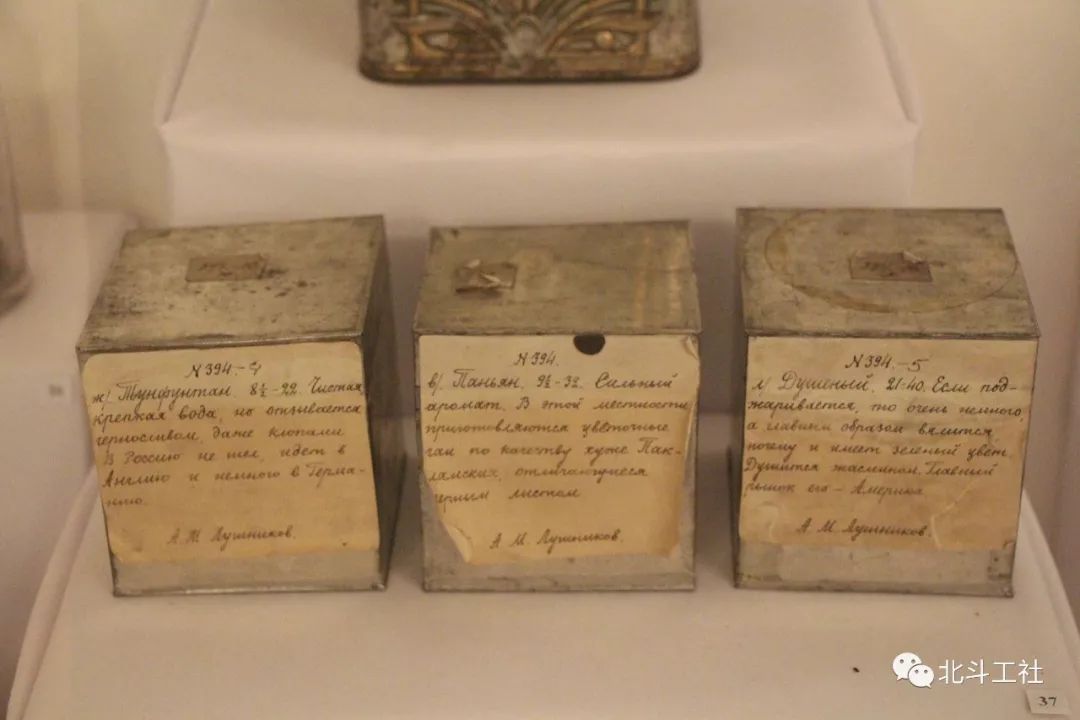 N 394.-4
ж/ Тунфунтан. 8½-22. Чистая,
крепкая вода, но отзывается
черносливом, даже клопами
В Россию не шел, идет в
Англию и немного в Герма-
нию.
А. М. Лушников.
N 394.
в/. Паньян. 9½-32. Сильный
аромат. В этой местности
приготовляются цветочные
чаи по качеству хуже Пак-
ламских, отличающиеся
черным листом
А. М. Лушников.
N 394.-5
л/ Душеный. 21-40. Если под-
жаривается, то очень немного,
а главным образом вялится
почему и имеет зеленый цвет.
Душится жасмином. Главный
рынок его - Америка
А. М. Лушников.
北斗工社
37